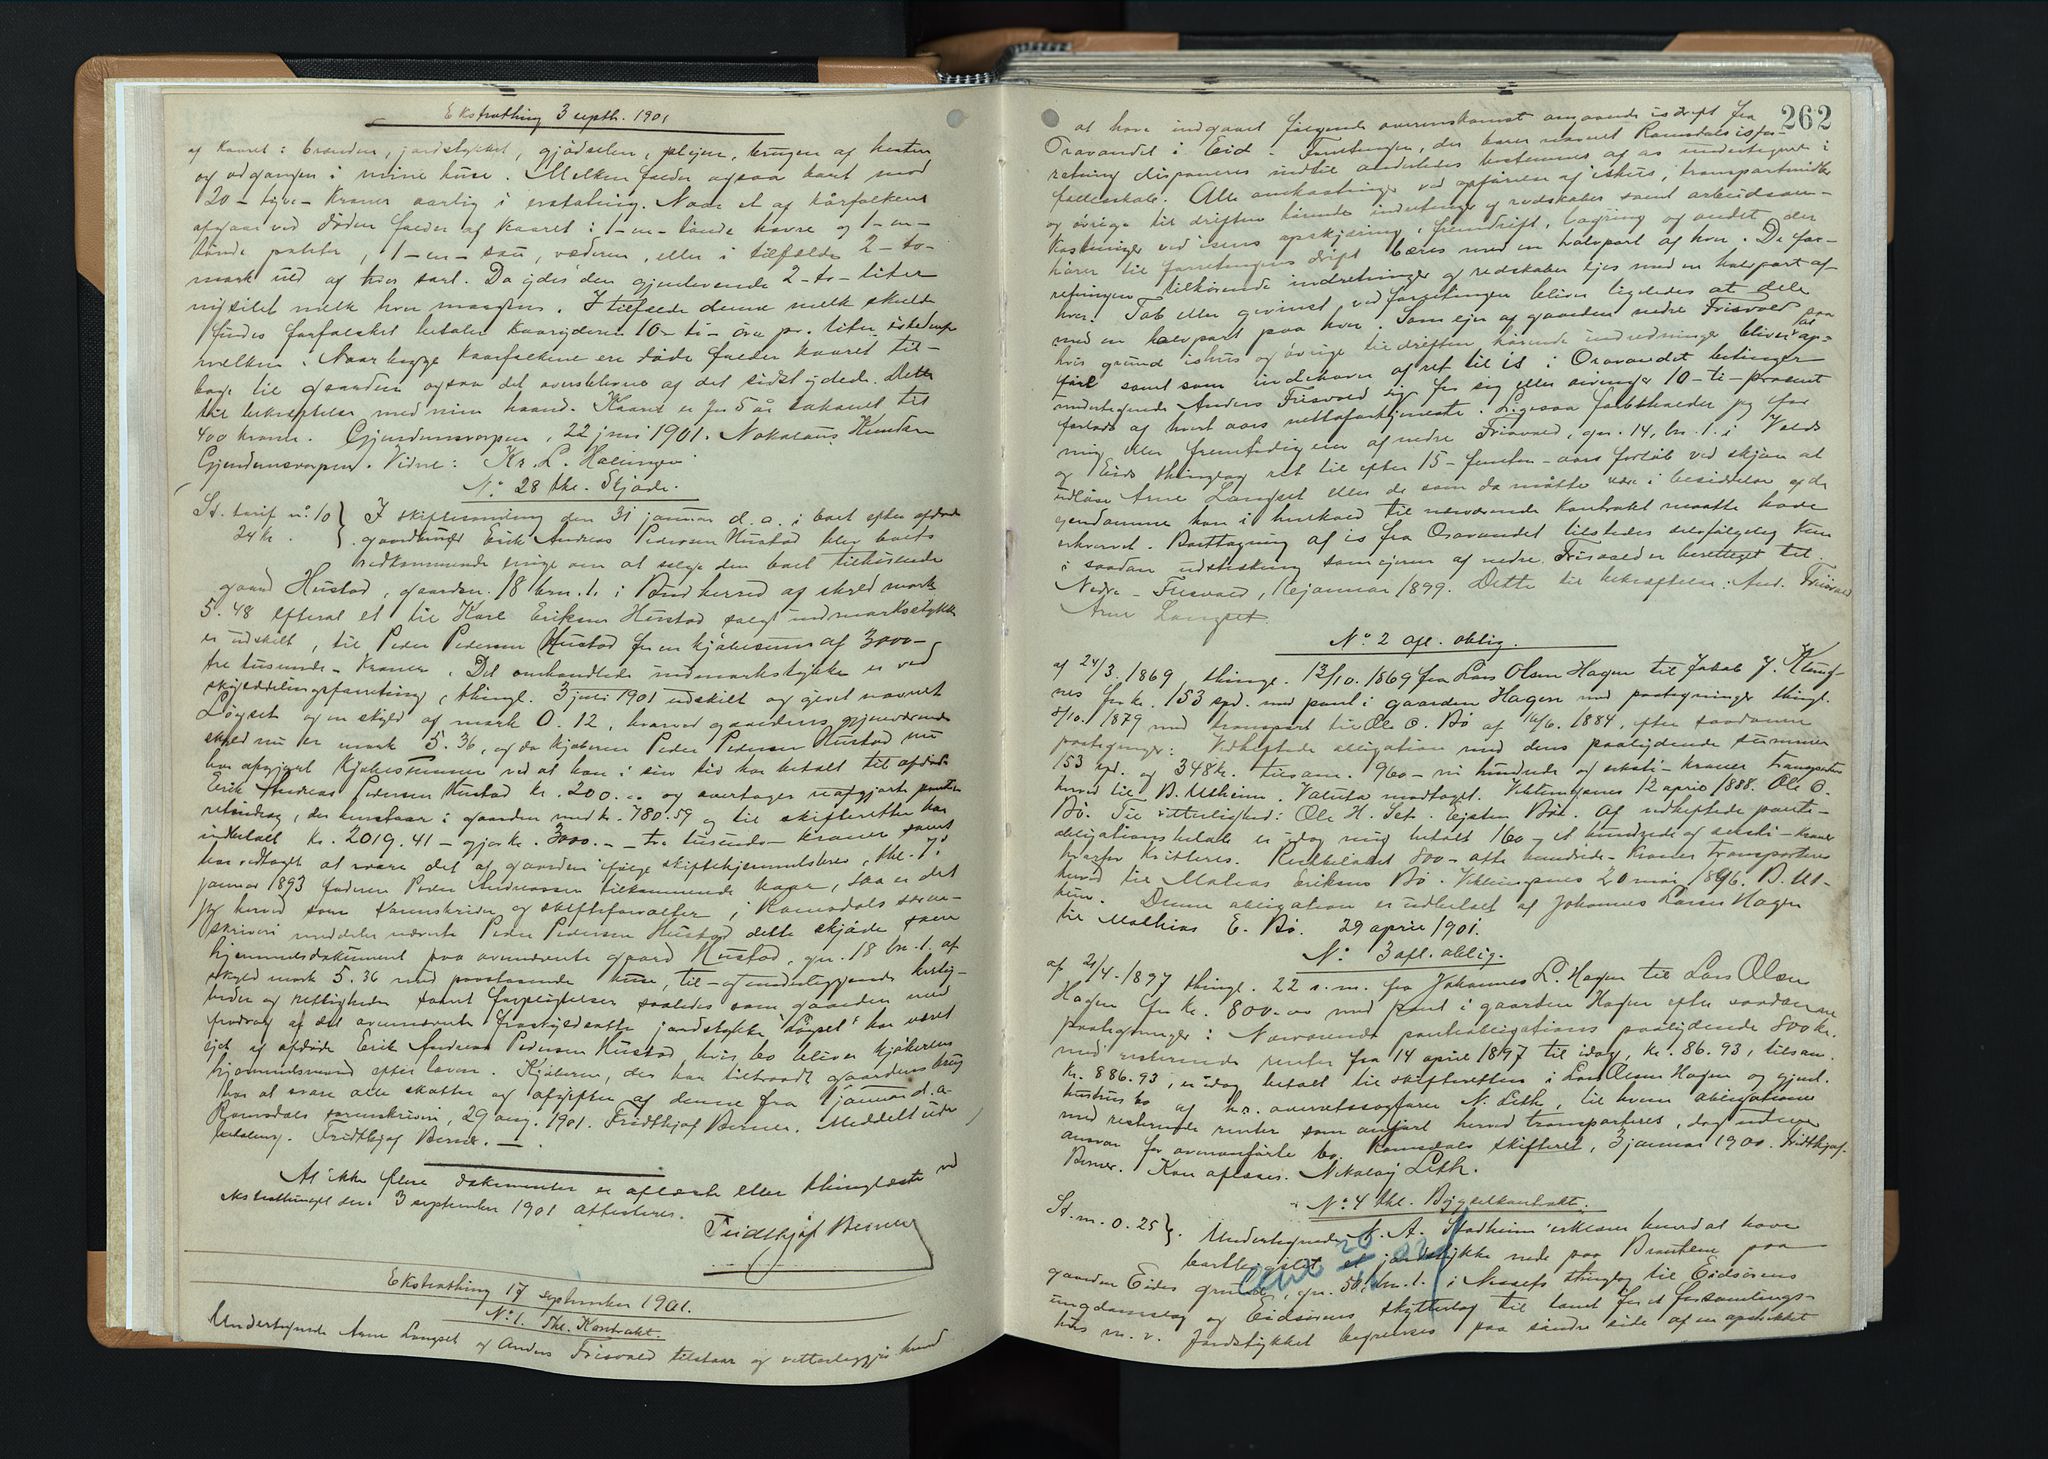 Ekstrathing 3 septbr. 1901
af kaaret: brænden, jordstykket, gjødselen, plejen, brugen af hesten
og adgangen i mine huse. Melken falder ogsaa bort mod
20 - tyve - kroner aarlig i erstatning. Naar et af kårfolkene
afgaar ved døden falder af kaaret: 1 - en - tønde havre og 1 - en -
tønde poteter, 1 - en - sau, væderen, eller i tilfælde 2 - to -
mark uld af hver sort. Da ydes den gjenlevende 2 - to - liter
nysilet melk hver morgen. I tilfælde denne melk skulde
findes forfalsket betaler kaaryderen 10 - ti - øre pr. liter istedenfor
melken. Naar begge kaarfolkene ere døde falder kaaret til-
bage til gaarden ogsaa det overblevne af det sidst ydede. Dette
til bekræftelse med min haand. Kaaret er for 5 år taxeret til
400 kroner. Gjendemsvorpen, 22 juni 1901. Nikolaus Knudsen
Gjendemsvorpen. Vidne: Kr. L.
No 28 thl. Skjøde.
St. tarif no. 10 } I skiftesamling den 31 januar d. a. i boet efter afdøde
24 kr. } gaardbruger Erik Andreas Pedersen Hustad blev boets
vedkommende enige om at sælge den boet tilhørende
gaard Hustad, gaardsn. 18 brn. 1. i Bud herred af skyld mark
5.48 efterat et til Karl Eriksen Hustad solgt indmarksstykke
er udskilt, til Peder Pedersen Hustad for en kjøbesum af 3000 -
tre tusinde - kroner. Det omhandlede indmarksstykke er ved
skylddelingsforretning, thingl. 3 juli 1901 udskilt og givet navnet
Løgset og en skyld af mark 0.12, hvorved gaardens gjenværende
skyld nu er mark 5.36, og da kjøberen Peder Pedersen Hustad nu
har afgjort kjøbesummen ved at han i sin tid har betalt til afdøde
Erik Andreas Pedersen Hustad kr. 200.00 og overtager uafgjorte pante-
, der henstaar i gaarden med kr. 780.59 og til skifteretten har
indbetalt kr. 2019.41 - gjør kr. 3000.- - tre tusinde - kroner samt
har vedtaget at svare det af gaarden ifølge skiftehjemmelsbrev, thl. 7.
januar 1893 faderen Peder Andreassen tilkommende kaar, saa er det
jeg herved som sorenskriver og skifteforvalter i Romsdals soren-
skriveri meddeler nævnte Peder Pedersen Hustad dette skjøde som
hjemmelsdokument paa ovennævnte gaard Hustad, gn. 18 bn. 1. af
skyld mark 5.36 med paastaaende huse, til- og underliggende herlig-
heder og rettigheder samt forpligtelser saaledes som gaarden med
fradrag af det ovennævnte fraskyldsatte jordstykke "Løgset" har været
ejet af afdøde Erik Andreas Pedersen Hustad, hvis bo bliver kjøberens
hjemmelsmand efter loven. Kjøberen, der har tiltraadt gaardens brug
har at svare alle skatter og afgifter af denne fra 1 januar d. a.
Romsdals sorenskriveri, 29 aug. 1901. Fridthjof Berner. Meddelt uden
betaling. Fridthjof Berner. -
At ikke flere dokumenter er aflæste eller thinglæste ved
ekstrathinget den 3 september 1901 attesteres.
Fridthjof Berner
Ekstrathing 17 september 1901.
No 1. Thl. Kontrakt.
Undertegnede Arne Langset og Anders Frisvold tilstaar og vitterliggjør herved
262
at have indgaaet følgende overenskomst angaaende isdrift fra
Osavandet i Eid. Forretningen, der bærer navnet Romsdals isfor-
retning disponeres indtil anderledes bestemmes af os undertegnede i
fællesskab. Alle omkostninger ved opførelse af ishus, transportmidler
og øvrige til driften hørende indretninger og redskaber samt arbeidsom-
kostninger ved isens opskjæring, fremdrift, lagring og andet, der
hører til forretningens drift bæres med en halvpart af hver. De for-
retningen tilhørende indretninger og redskaber ejes med en halvpart af
hver. Tab eller gevinst ved forretningen bliver ligeledes at dele
med en halvpart paa hver. Som ejer af gaarden nedre Frisvold paa
hvis grund ishus og øvrige til driften hørende indredninger bliver at op-
føre samt som indehaver af ret til is i Osavandet betinger
undertegnede Anders Frisvold sig for sig eller arvinger 10 - ti - procent
forlods af hvert aars nettofortjeneste. Ligesaa forbeholder jeg for
mig eller fremtidig eier af nedre Frisvold, gn. 14, bn. 1. i Voll
og Eids thinglag ret til efter 15 - femten - aars forløb ved skjøn at
udløse Arne Langset eller de som da måtte være i besiddelse af de
ejendomme han i henhold til nærværende kontrakt maatte have
erhvervet. Borttagning af is fra Osavandet tilstedes selvfølgelig kun
i saadan udstrækning som ejeren af nedre Frisvold er berettiget til.
Nedre - Frisvold, januar 1899. Dette til bekræftelse: And. Frisvold
Arne Langset.
No 2 afl. oblig.
af 24/3. 1869, thingl. 13/10. 1869 fra Lars Olsen Hagen til Jakob J. Klung-
nes for kr. 153 spd. med pant i gaarden Hagen med paategninger thingl.
8/10. 1879 med transport til Ole O. Bø af 16/6. 1884, efter saadanne
paategninger: Vedheftede obligation med dens paalydende summer
153 spd. og 348 kr. tilsam. 960 - ni hundrede og seksti - kroner transporteres
herved til B. Utheim. Valuta modtaget. Veblungsnes 12 april 1888. Ole O.
Bø. Til vitterlighed: Ole H. Set. Ejsten Bø. Af vedheftede pante-
obligationsbeløb er idag mig betalt 160 - et hundrede og seksti - kroner
hvorfor kvitteres. Restbeløbet 800 - otte hundrede - kroner transporteres
herved til Mathias Eriksen Bø. Veblungsnes 20 mai 1896. B. Ut-
heim. Denne obligation er indbetalt af Johannes Larsen Hagen
til Mathias E. Bø. 29 april 1901.
No 3 afl. oblig.
af 21/4. 1897 thingl. 22 s. m. fra Johannes L. Hagen til Lars Olsen
Hagen for kr. 800.00 med pant i gaarden Hagen efter saadanne
paategninger: Nærværende panteobligations paalydende 800 kr.
med resterende renter fra 14 april 1897 til idag, kr. 86.93, tilsam.
kr. 886.93, er idag betalt til skifteretten i Lars Olsen Hagen og gjenl.
hustrus bo af hr. overretssagfører N. Leth, til hvem obligationen
med resterende renter som anført herved transporteres, dog uden
ansvar for ovenanførte bo. Romsdals skifteret, 3 januar 1900. Fridthjof
Berner. Kan aflæses. Nikolay Leth.
No 4 thl. Bygselkontrakt.
St. m. 0.25 } Undertegnede A. Stadheim erklærer herved at have
bortbygslet et jordstykke nede paa Brautene paa
gaarden Eides grund, gn. 50, bn. 1. i Nessets thinglag til Eidsørens
ungdomslag og Eidsørens skytterlag til tomt for et forsamlings-
hus m. v. Jordstykket begrænses paa søndre side af en opstikket